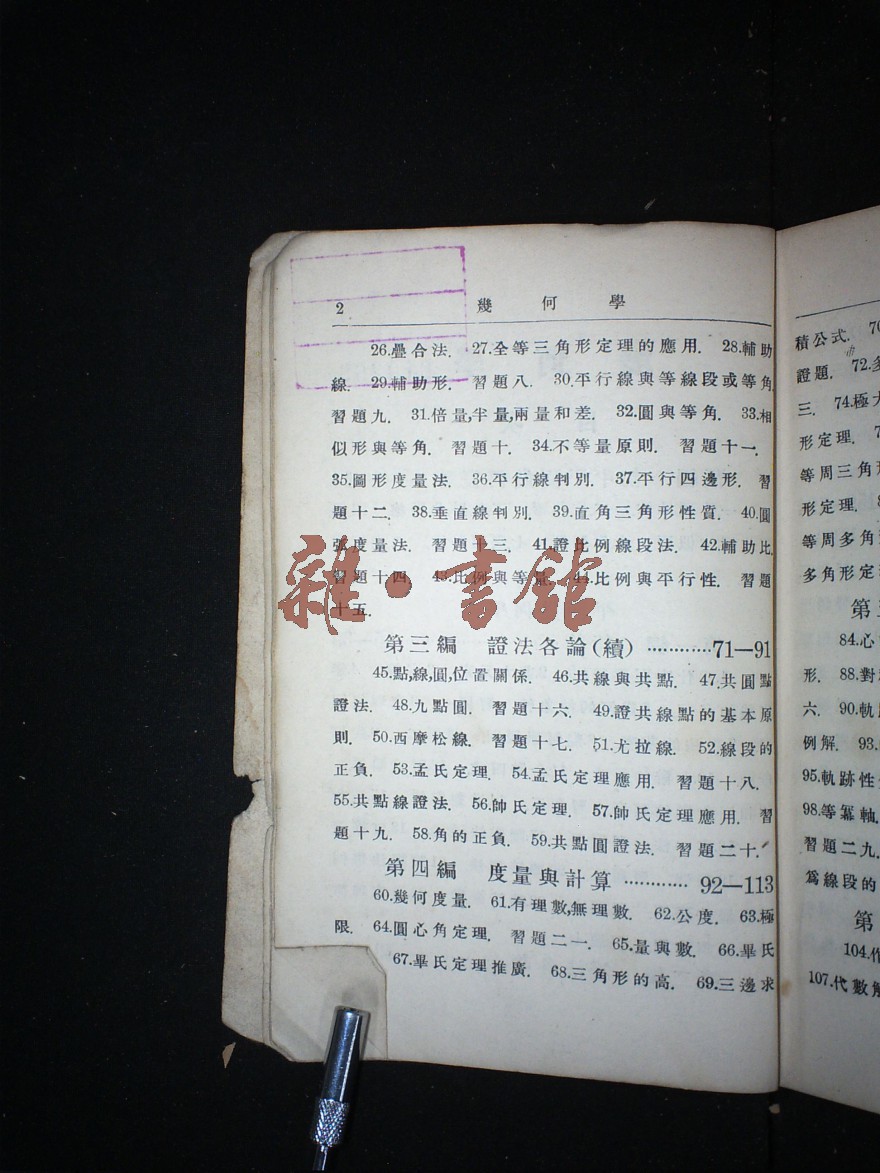 2 幾何學
26.疊合法. 27.全等三角形定理的應用. 28.輔助
線. 29.輔助形. 習題八. 30.平行線與等線段或等角.
習題九. 31.倍量,半量,兩量和差. 32.圓與等角. 33.相
似形與等角. 習題十. 34.不等量原則. 習題十一.
35.圖形度量法. 36.平行線判別. 37.平行四邊形. 習
題十二. 38.垂直線判別. 39.直角三角形性質. 40.圓
弧度量法. 習題十三. 41.證比例線段法. 42.輔助比.
習題十四. 43.比例與等量. 44.比例與平行性. 習題
十五.
第三編 證法各論(續) ············71—91
45.點,線,圓,位置關係. 46.共線與共點. 47.共圓點
證法. 48.九點圓. 習題十六. 49.證共線點的基本原
則. 50.西摩松線. 習題十七. 51.尤拉線. 52.線段的
正負. 53.孟氏定理. 54.孟氏定理應用. 習題十八.
55.共點線證法. 56.帥氏定理. 57.帥氏定理應用. 習
題十九. 58.角的正負. 59.共點圓證法. 習題二十.
第四編 度量與計算 ············ 92—113
60.幾何度量. 61.有理數,無理數. 62.公度. 63.極
限. 64.圓心角定理. 習題二一. 65.量與數. 66.畢氏
67.畢氏定理推廣. 68.三角形的高. 69.三邊求
雜·書館
積公式. 70
證題. 72.多
三. 74.極大
形定理. 7
等周三角形
形定理.
等周多角
多角形定
第
84.心
形. 88.對
六. 90.軌
例解. 93.
95.軌跡性
98.等冪軸.
習題二九.
爲線段的
第
104.作
107.代數解